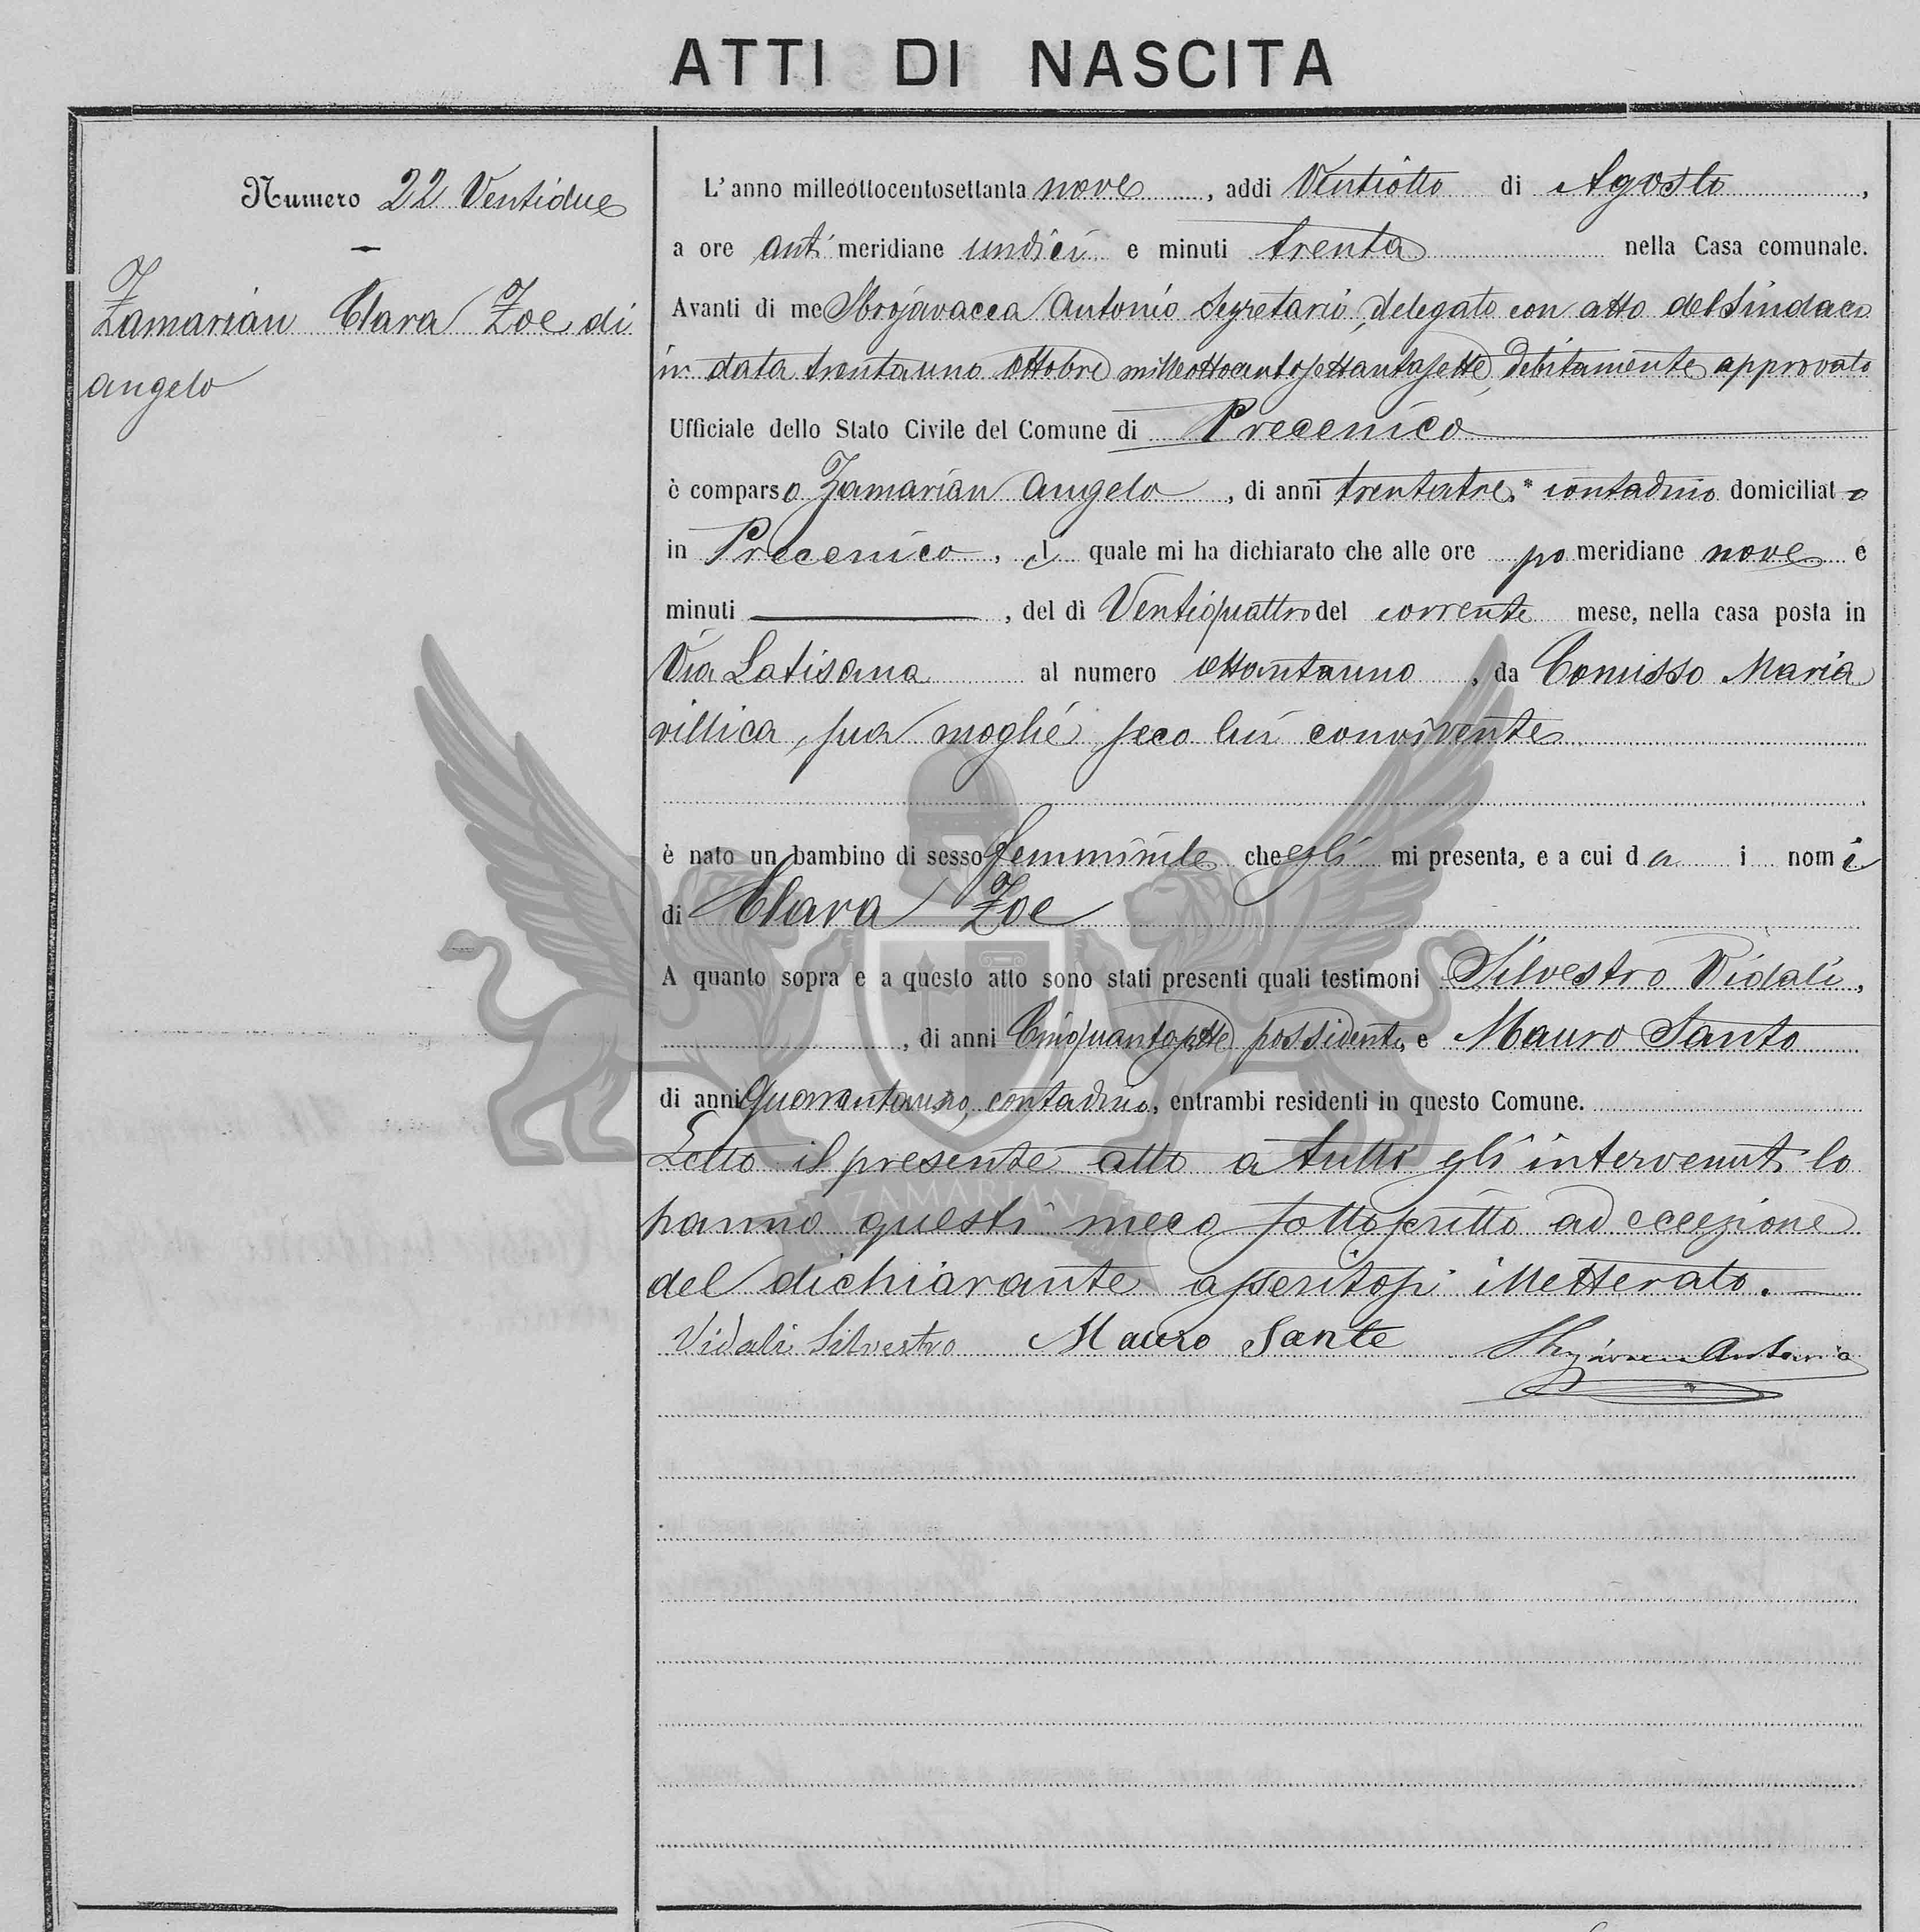 ATTI DI NASCITA
Numero 22 Ventidue
Zamarian Clara Zoe di
Angelo
L'anno milleottocentosettanta nove, addi Ventiotto di Agosto,
a ore anti meridiane undici e minuti trenta nella Casa comunale.
Avanti di me Sbrojavacca Antonio Segretario, delegato con atto del Sindaco
in data trentauno Ottobre milleottocentosettantasette, debitamente approvato
Ufficiale dello Stato Civile del Comune di Precenico
è comparso Zamarian Angelo, di anni trentatre,* contadino domiciliato
in Precenico, il quale mi ha dichiarato che alle ore po meridiane nove e
minuti , del dì Ventiquattro del corrente mese, nella casa posta in
Via Latisana al numero ottantauno, da Comisso Maria
villica, sua moglie seco lui convivente
è nato un bambino di sesso femminile che egli mi presenta, e a cui da i nomi
di Clara Zoe
A quanto sopra e a questo atto sono stati presenti quali testimoni Silvestro Vidali,
, di anni Cinquantasette possidente, e Mauro Santo
di anni Quarantauno, contadino, entrambi residenti in questo Comune.
Letto il presente atto a tutti gli intervenuti lo
hanno questi meco sottoscritto ad eccezione
del dichiarante asseritosi illetterato.
Vidali Silvestro Mauro Sante Antonio
ZAMARIAN